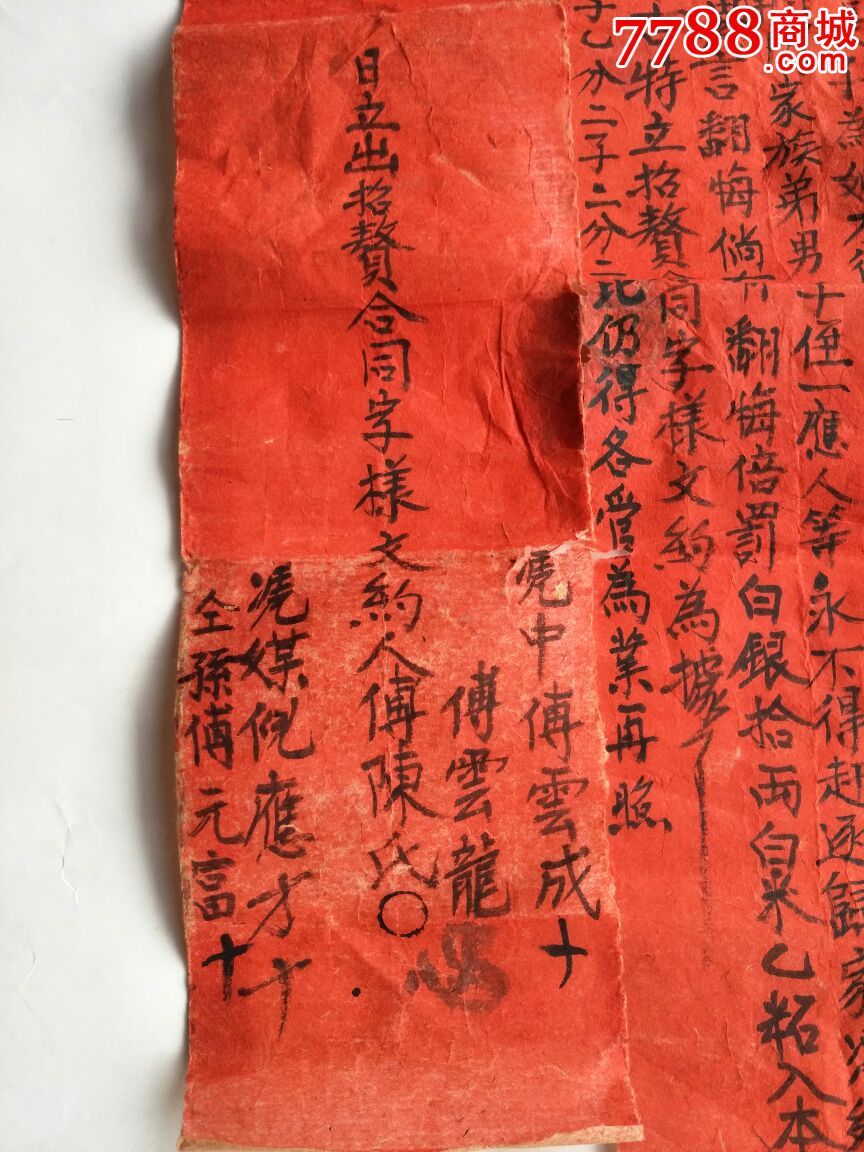 7788商城
.com
為
家族弟男十侄一應人等永不得赶逐歸家
言翻悔倘有翻悔倍罰白銀拾兩白米乙粘入本
特立招贅合同字樣文約為據
子乙分二子二分二比仍得各管為業再照
凴中傅雲成十
傅雲龍
日立出招贅合同字樣文約人傅陳氏〇
凴媒倪應才十
仝孫傅元富十